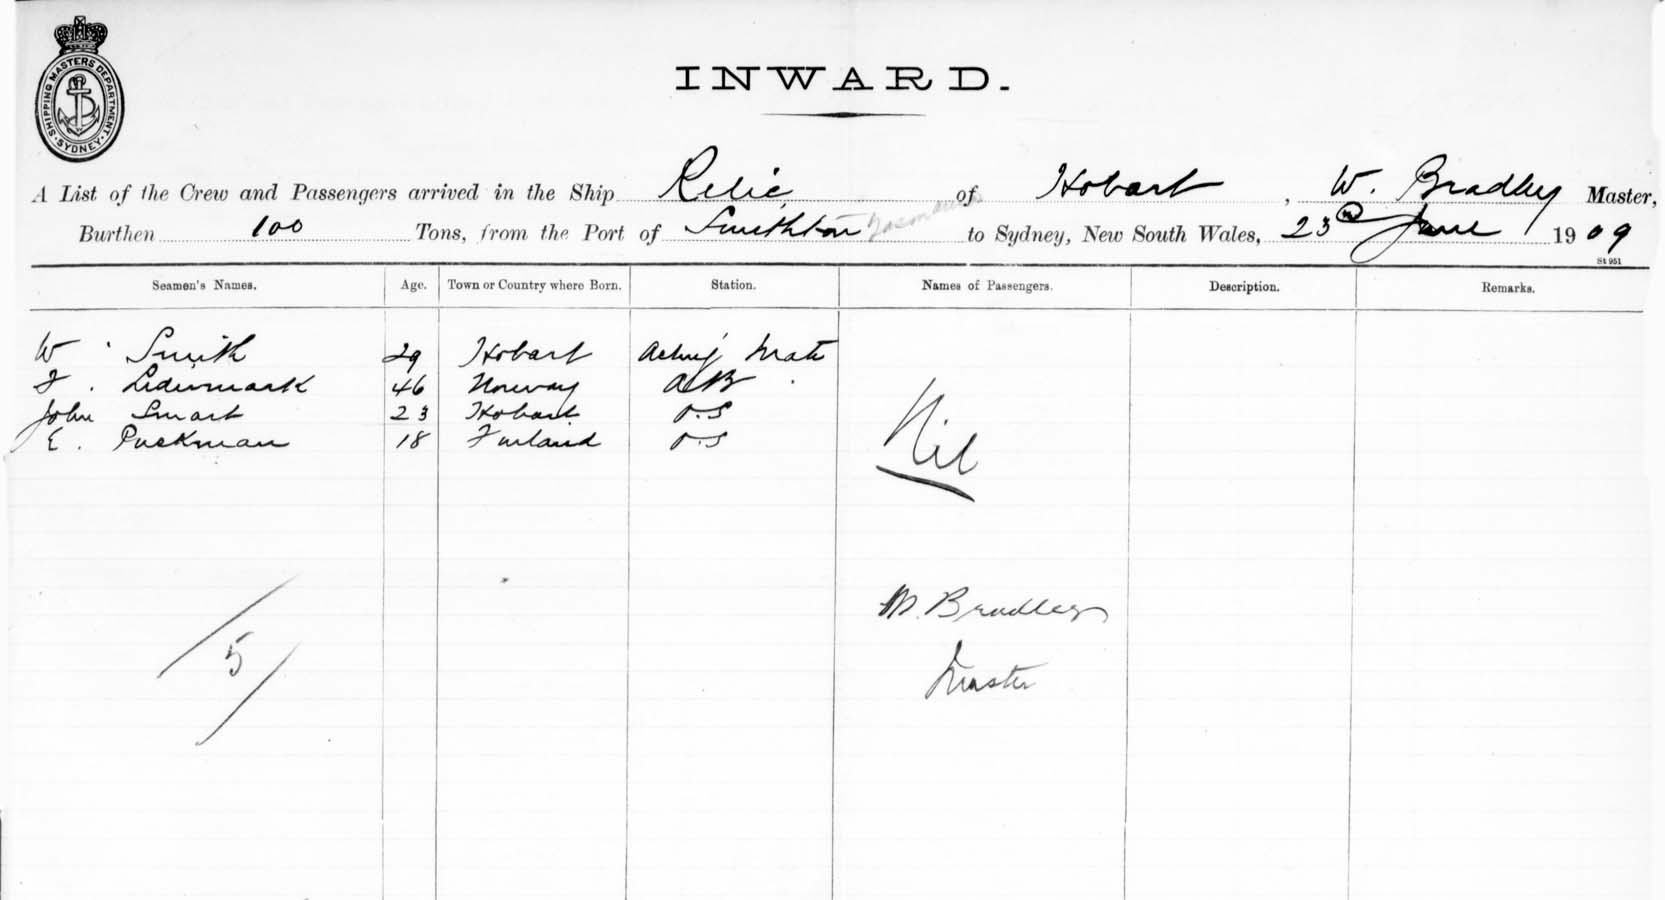 SHIPPING MASTERS DEPARTMENT. SYDNEY.
INWARD.
A List of the Crew and Passengers arrived in the Ship Relic, of Hobart, W. Bradley Master,
Burthen 100 Tons, from the Port of Smithton Tasmania to Sydney, New South Wales, 23rd June 1909
St 951
Seamen's Names. Age. Town or Country where Born. Station. Names of Passengers. Description. Remarks.
W. Smith 29 Hobart Acting Mate
46 Norway AB
John Smart 23 Hobart O.S
E. Puckman 18 Finland O.S
Nil
W. Bradley
Master
/5/